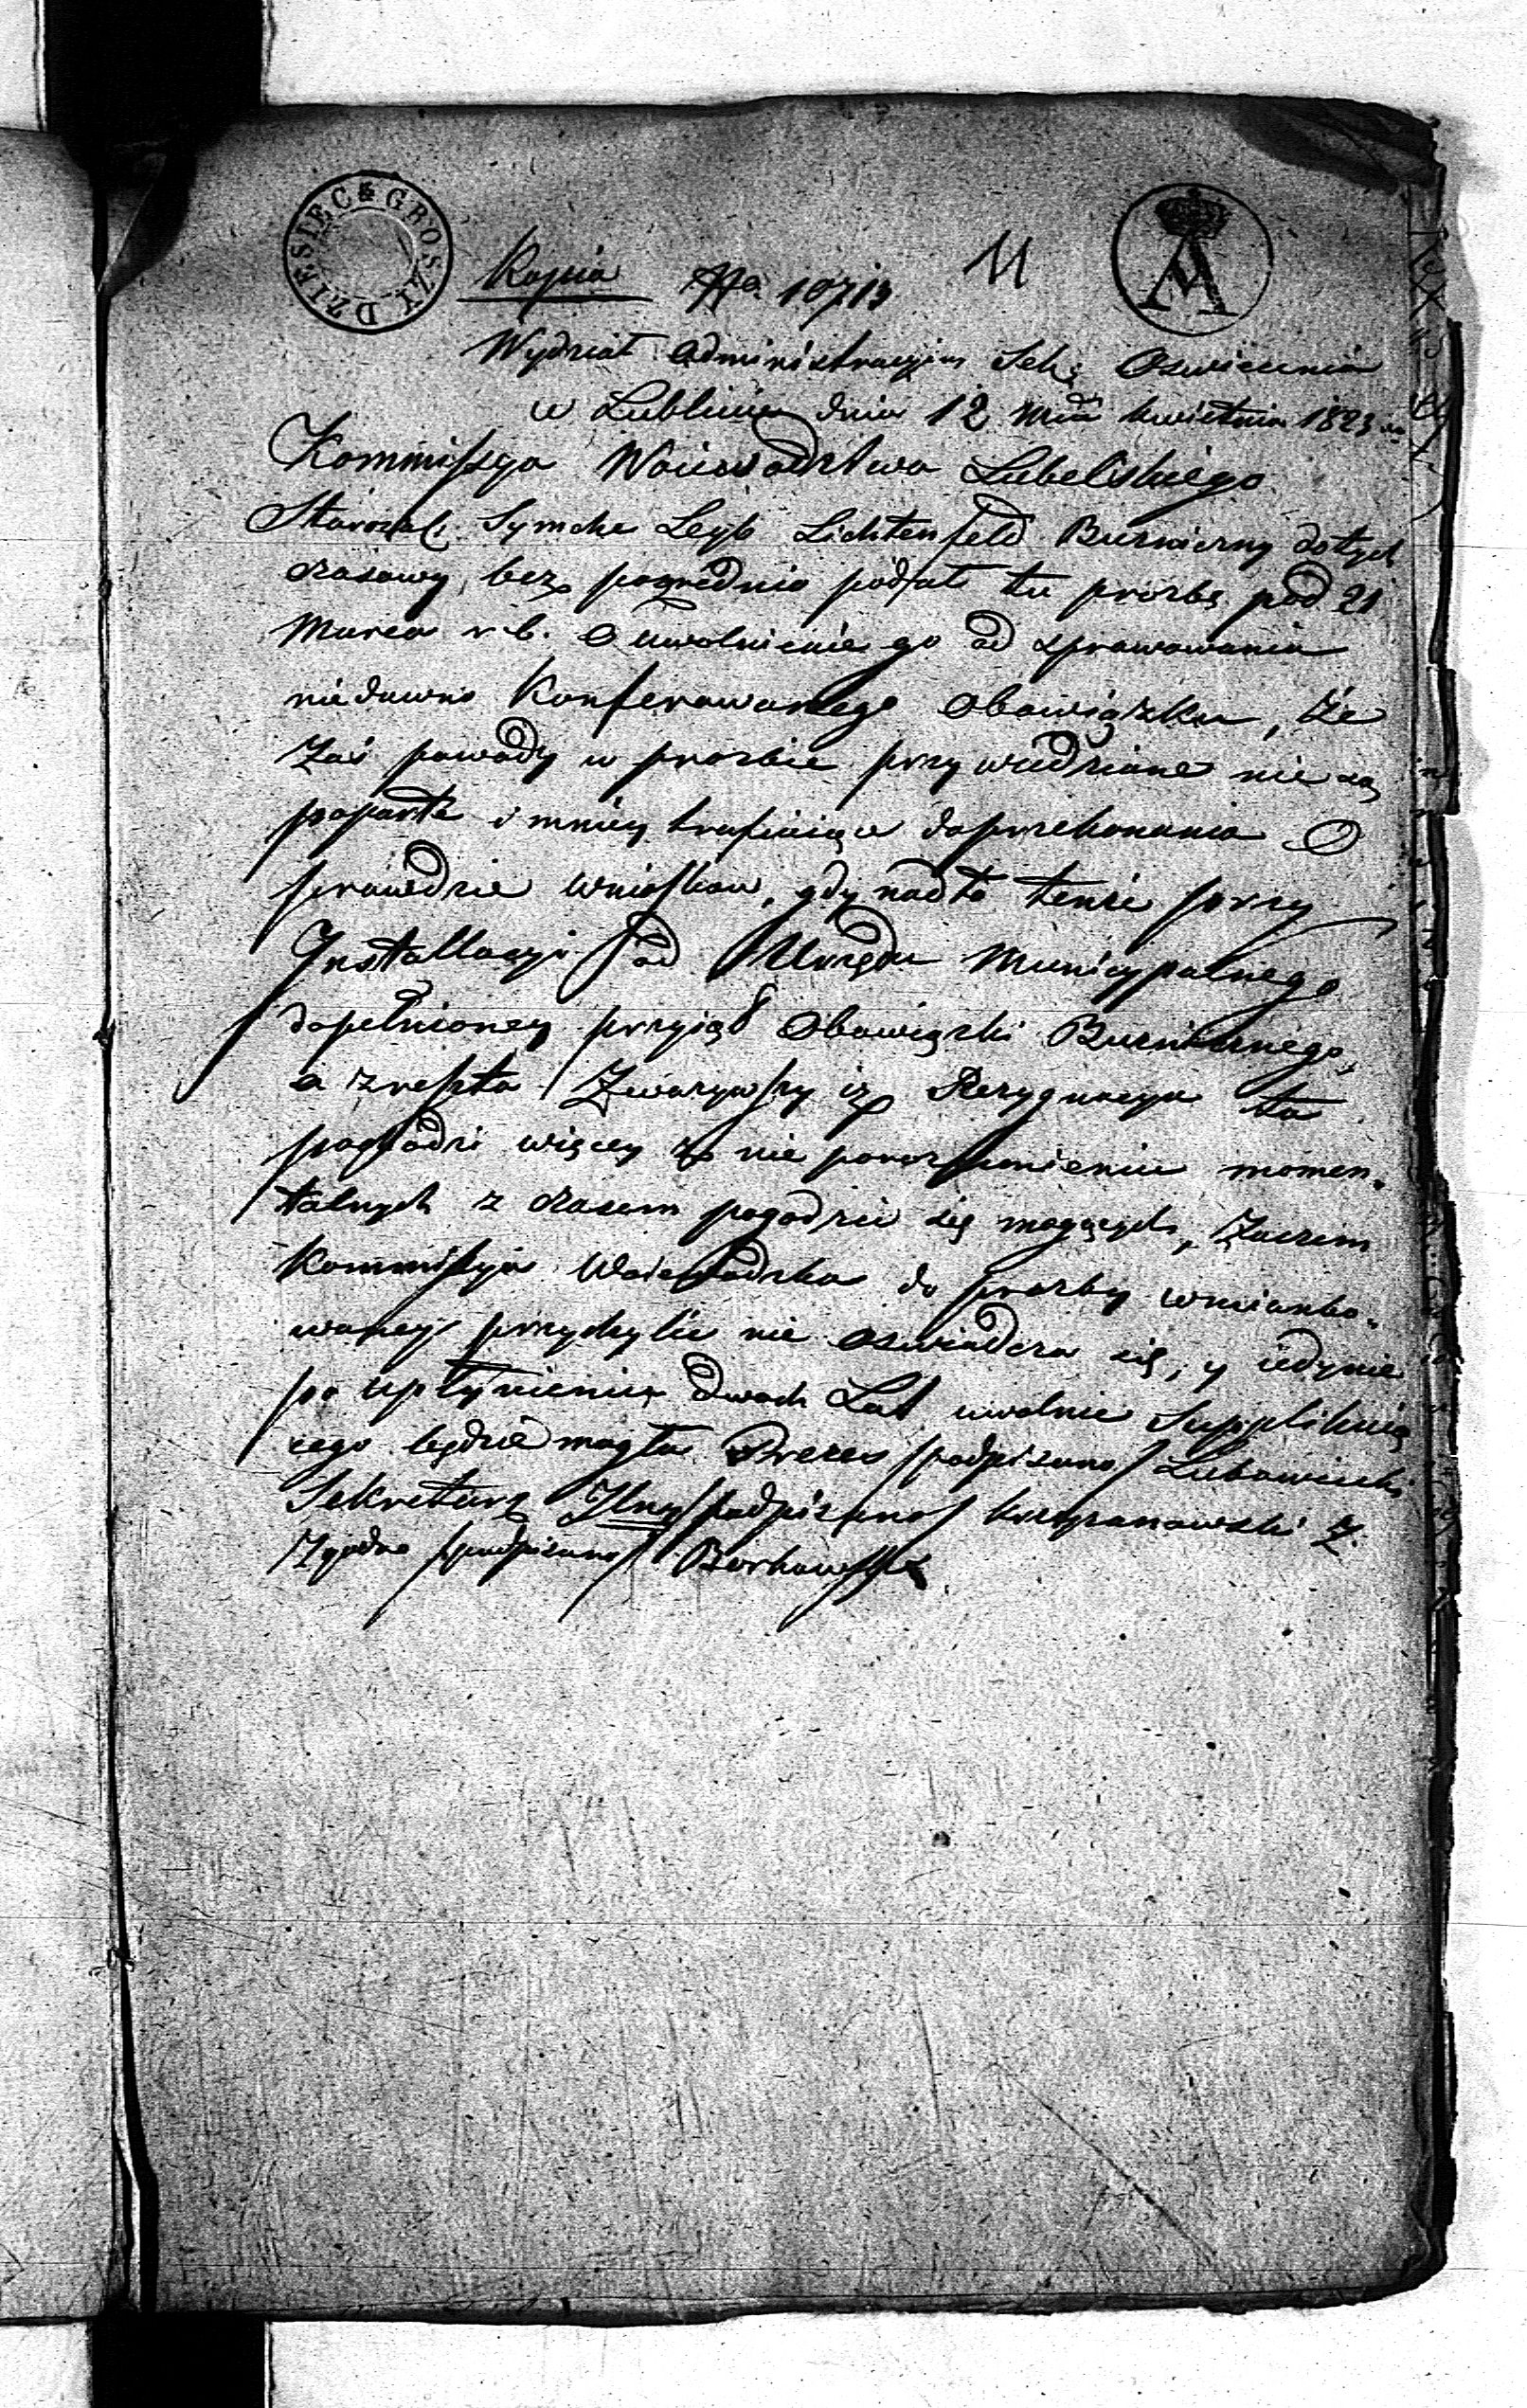 DZIESIĘC GROSZY
Kopia No. 10713 11
Wydział Administracyiny Sek. Oswiecenia
w Lublinie dnia 12 Mca Kwietnia 1823
Kommissya Woiewodztwa Lubelskiego
Starozak. Symcha Leyb Lichtenfeld Buzniczny dotych
czasowy, bez posrednio podał tu prozbę pod 21
Marca r. b. o uwolnienie go od sprawowania
niedawno konferowanego obowiązku, że
zaś powody w prozbie przywiedzione nie są
poparte i mniey trafiaiące do przekonania o
prawdzie wnioskow, gdy nadto tenże przy
Installacyi od Urzędu Municypalnego
dopełnioney przyiął obowiązki Buznicznego,
a zreszta zwazywszy iż Rezygnacya ta
pochodzi więcey z nie porozumieniu momen-
talnych z czasem pogodzić się mogących, zaczem
Kommissya Woiewodzka do prozby wmianko-
waney przychylić nie oswiadcza się, y iedynie
po upłynieniu dwoch Lat uwolnić Supplikuią
cego będzie mogła Prezes /podpisano/ Lubowiecki
Sekretarz Jlny /podpisano/ Krzyzanowski Z.
Zgodno /podpisano/ Borkowski